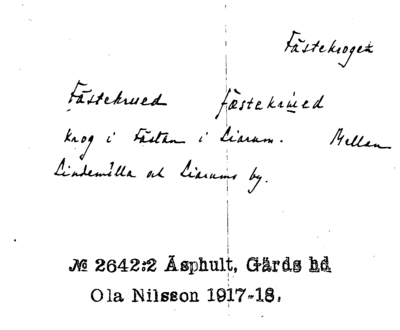 Fästekrogen
Fästekrued fæstekrued
krog i Fästan i Liarum. Mellan
Lindemölla och Liarums by.
№ 2642:2 Äsphult, Gärds hd
Ola Nilsson 1917-18.